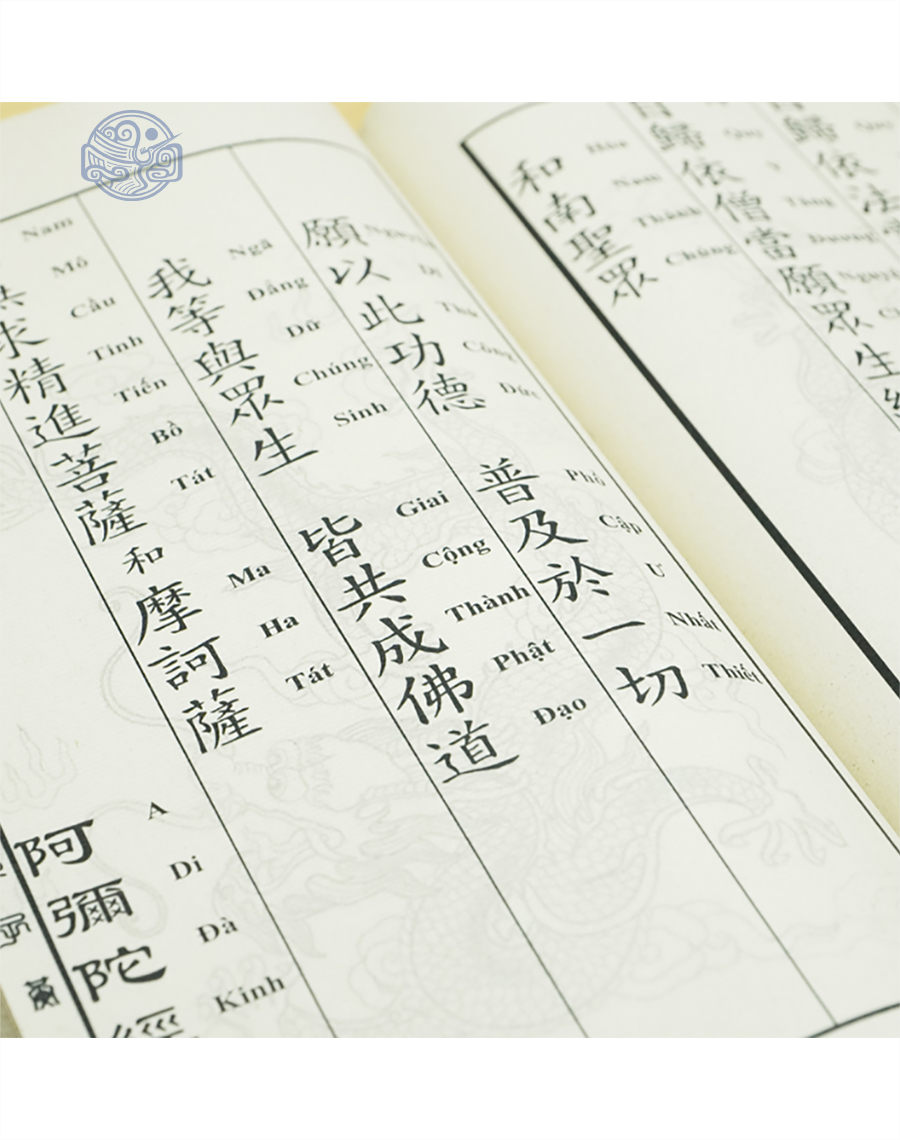 歸依法
歸依僧當願眾生
Quy Y Tăng Đương Nguyện
和南聖眾
Hòa Nam Thánh Chúng
願以此功德 普及於一切
Nguyện Dĩ Thử Công Đức Phổ Cập Ư Nhất Thiết
我等與眾生 皆共成佛道
Ngã Đẳng Dữ Chúng Sinh Giai Cộng Thành Phật Đạo
求精進菩薩和摩訶薩
Nam Mô Cầu Tinh Tiến Bồ Tát Ma Ha Tát
阿彌陀經
A Di Đà Kinh